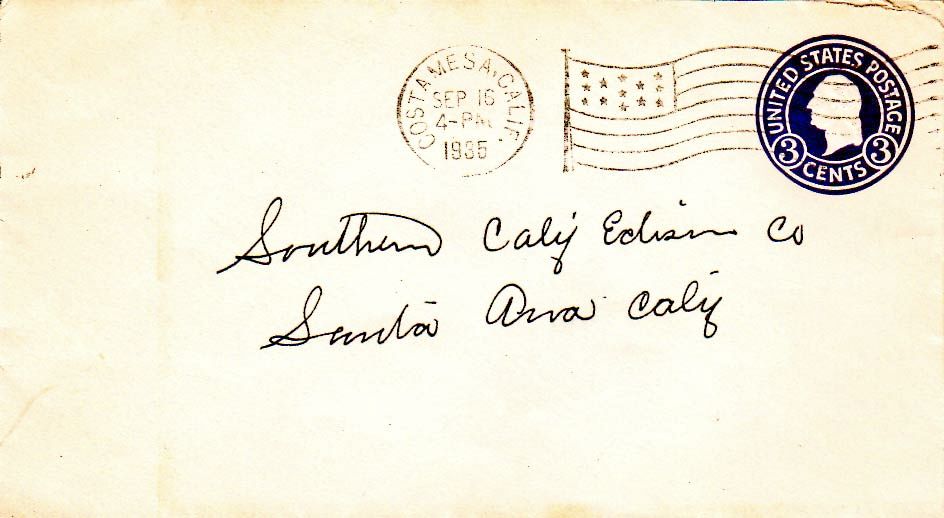 COSTA MESA, CALIF.
SEP 16
4-PM
1935
UNITED STATES POSTAGE
3 CENTS 3
Southern Calif Edison Co
Santa Ana Calif